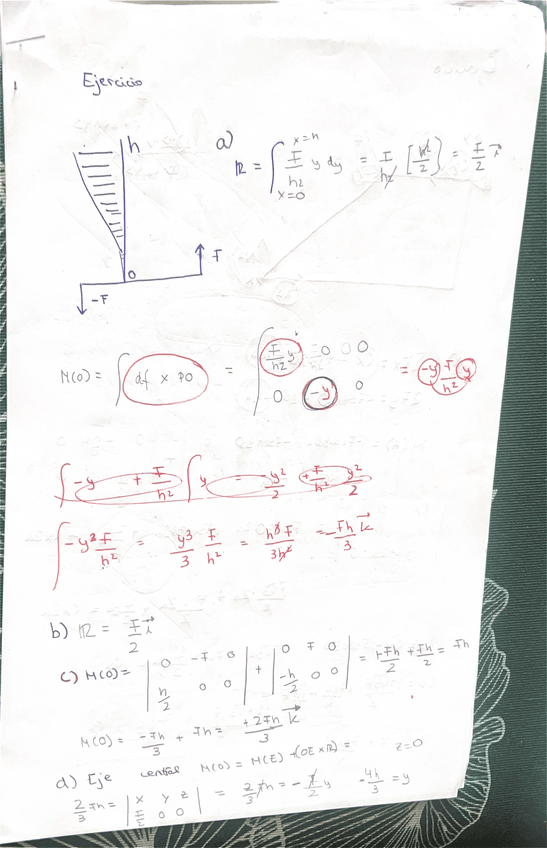 Ejercicio
h
O
F
-F
a)
R = ∫ x=0 x=h F/h² y dy = F/h² [h²/2] = F/2 i
M(O) = ∫ df x PO = ∫ | F/h² y 0 0 / 0 -y 0 | = -y F/h² y
∫ -y + F/h² ∫ y = -y²/2 + F/h² y²/2
∫ -y² F/h² = y³/3 F/h² = h³ F/3h² = -Fh/3 k
b) R = F/2 i
c) M(O) = | 0 -F 0 / h/2 0 0 | + | 0 F 0 / -h/2 0 0 | = +Fh/2 + Fh/2 = Fh
M(O) = -Fh/3 + Fh = +2Fh/3 k
d) Eje central M(O) = M(E) + (OE x R) = z=0
2/3 Fh = | x y z / F/2 0 0 | = 2/3 Fh = - F/2 y -4h/3 = y